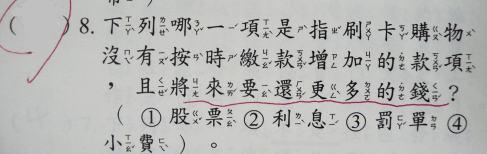 (　) 8. 下列哪一項是指刷卡購物
沒有按時繳款增加的款項
，且將來要還更多的錢？
( ① 股票 ② 利息 ③ 罰單 ④
小費 ) 。